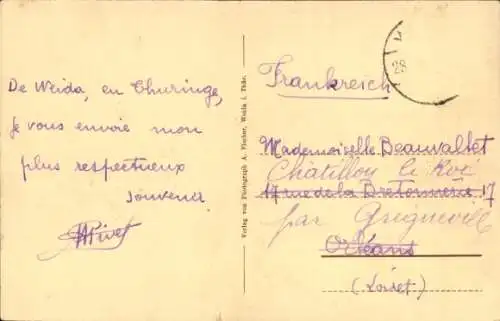 De Weida, en Thuringe,
je vous envoie mon
plus respectueux
souvenir
Verlag von Photograph A. Fischer, Weida i. Thür.
28
Frankreich
Mademoiselle Beauvallet
Chatillon le Roi
17 rue de la Bretonnerie 17
par Grigneville
Orléans
(Loiret)